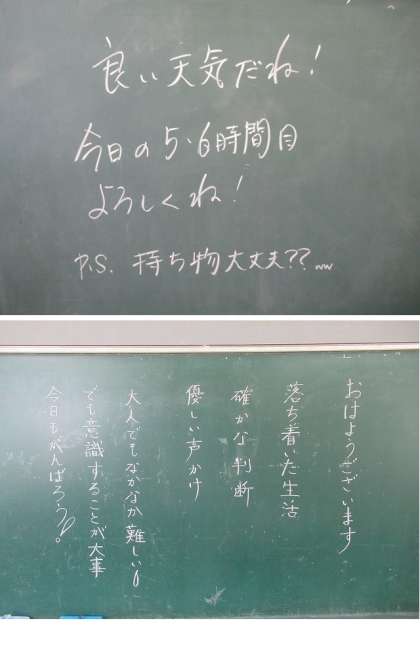 良い天気だね!
今日の5・6時間目
よろしくね!
P.S. 持ち物大丈夫??
おはようございます
落ち着いた生活
確かな判断
優しい声かけ
大人でもなかなか難しい!
でも意識することが大事
今日もがんばろう。